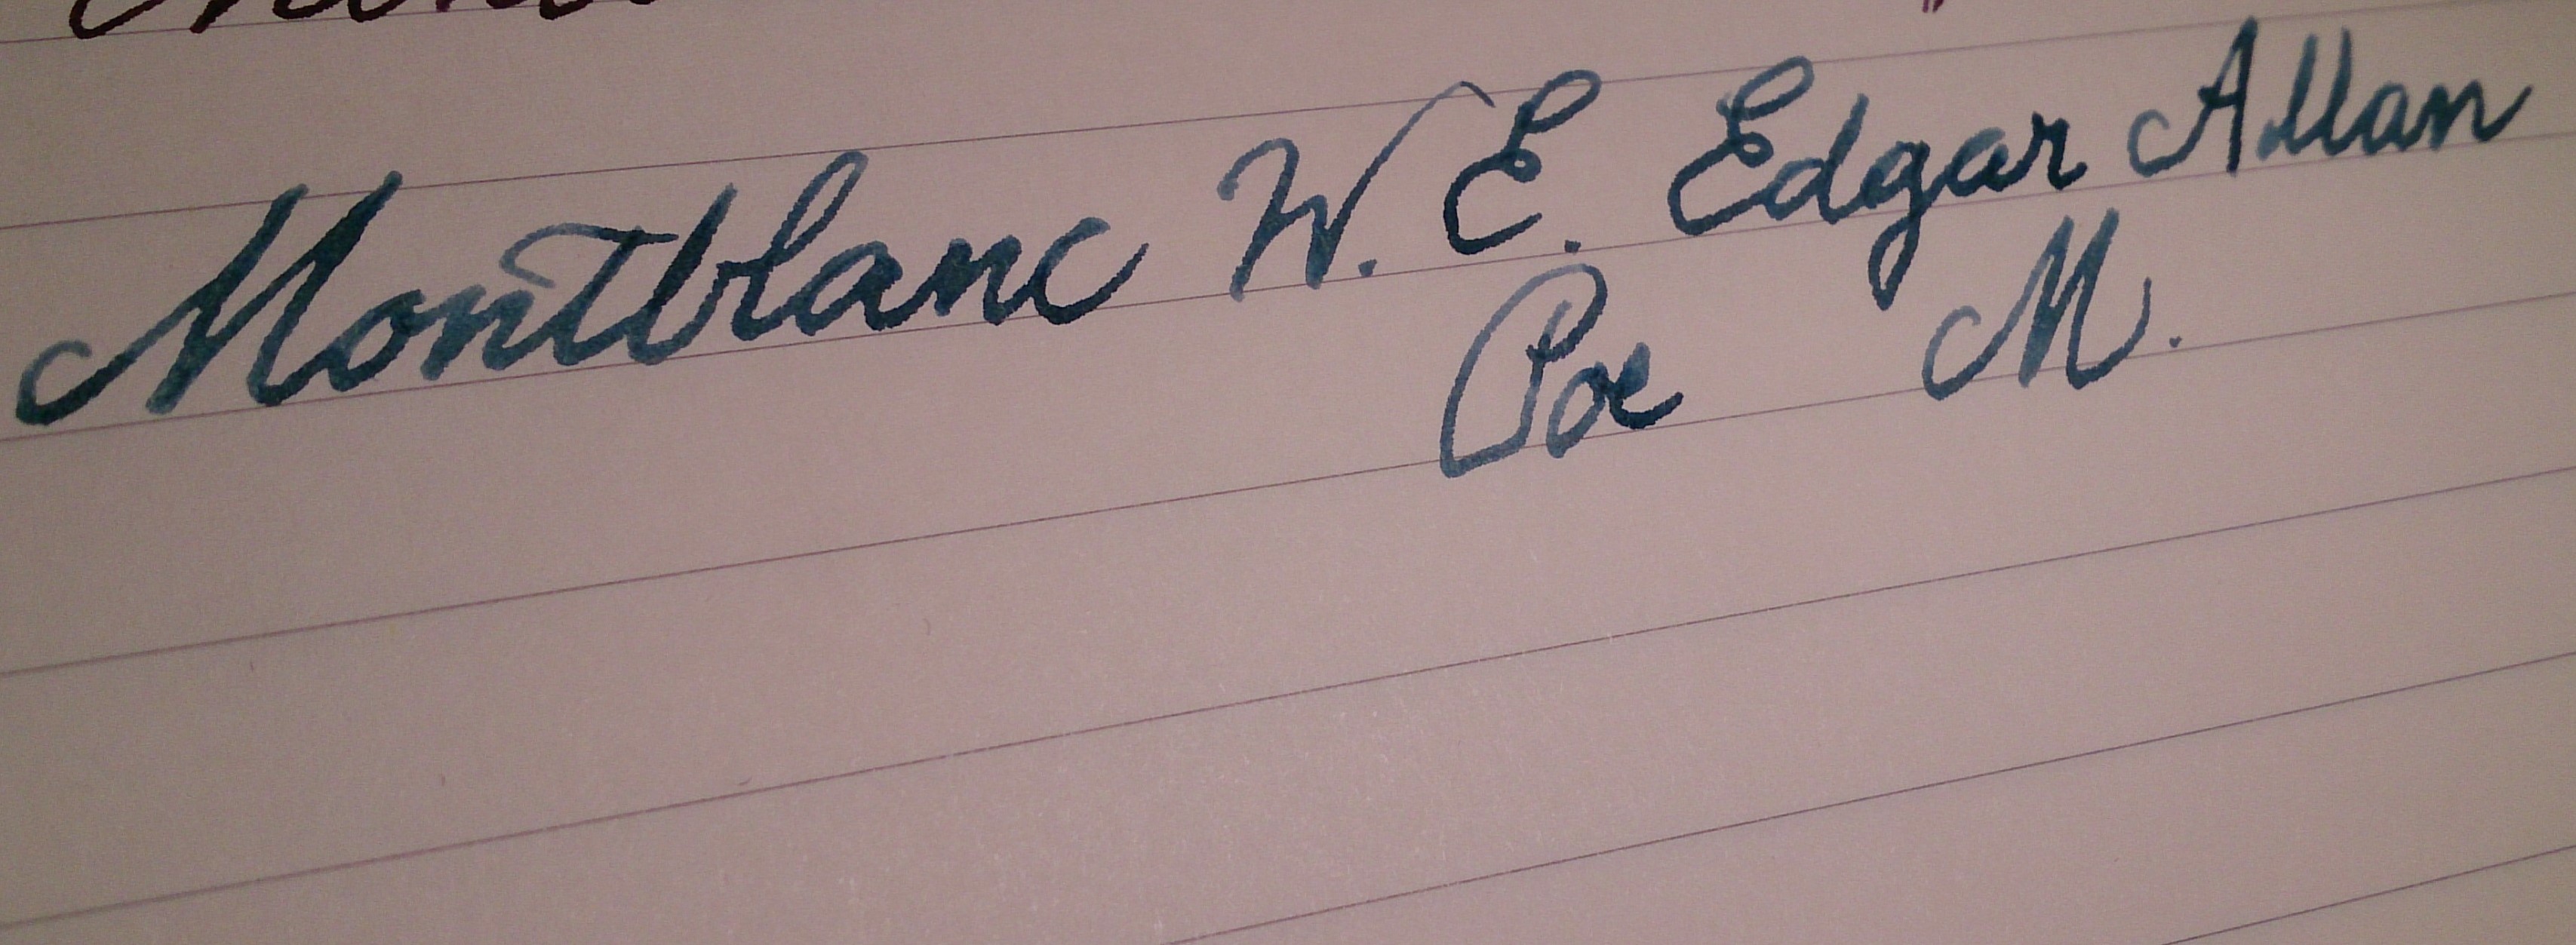 Montblanc W.E. Edgar Allan
Poe M.